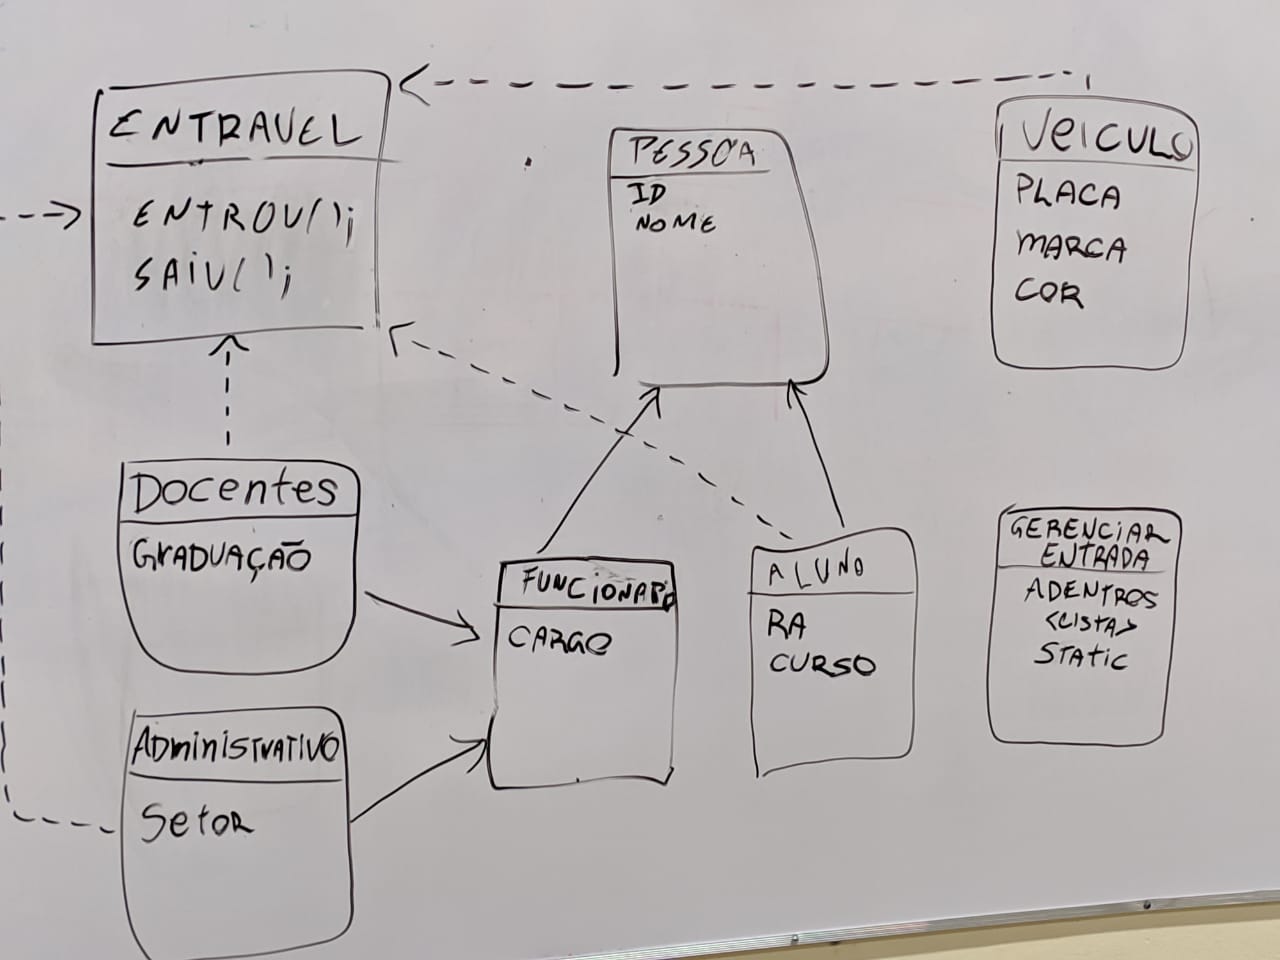 ENTRAVEL
ENTROU();
SAIU();
PESSOA
ID
NOME
VEICULO
PLACA
MARCA
COR
Docentes
GRADUAÇÃO
FUNCIONARIO
CARGO
ALUNO
RA
CURSO
GERENCIAR
ENTRADA
ADENTROS
<LISTA>
STATIC
ADMINISTRATIVO
Setor